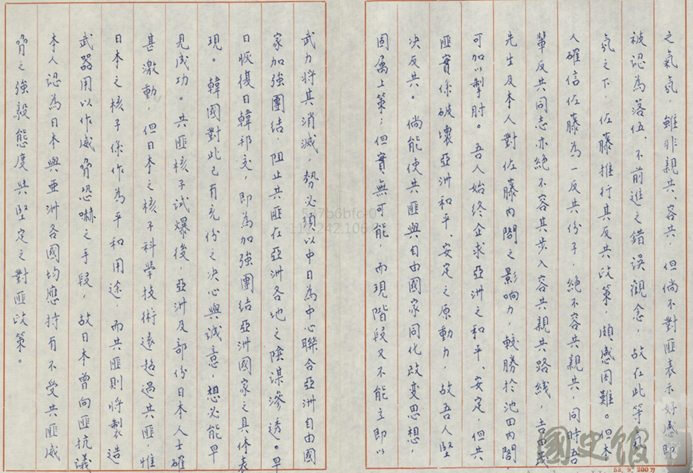 之氣氛，雖非親共、容共，但倘不對匪表示好感即
被認為落伍、不前進之錯誤觀念，故在此等
氣之下，佐藤推行其反共政策，頗感困難。但本
人確信佐藤為一反共份子，絕不容共親共，同時吾
輩反共同志亦絕不容其步入容共親共路線，吉田
先生及本人對佐藤內閣之影響力，較勝於池田內閣
可加以掣肘。吾人始終企求亞洲之和平、安定，但共
匪實係破壞亞洲和平、安定之原動力，故吾人堅
決反共。倘能使共匪與自由國家同化改變思想，
固屬上策；但實無可能，而現階段又不能立即以
武力將其消滅，勢必須以中日為中心聯合亞洲自由國
家加強團結，阻止共匪在亞洲各地之陰謀滲透。早
日恢復日韓邦交，即為加強團結亞洲國家之具體表
現。韓國對此已有充份之決心與誠意，想必能早
見成功。共匪核子試爆後，亞洲及部份日本人士確
甚激動，但日本之核子科學技術遠超過共匪，惟
日本之核子係作為和平用途，而共匪則將製造
武器用以作威脅恐嚇之手段，故日本曾向匪抗議
本人認為日本與亞洲各國均應持有不受共匪威
脅之強毅態度與堅定之對匪政策。
國史館